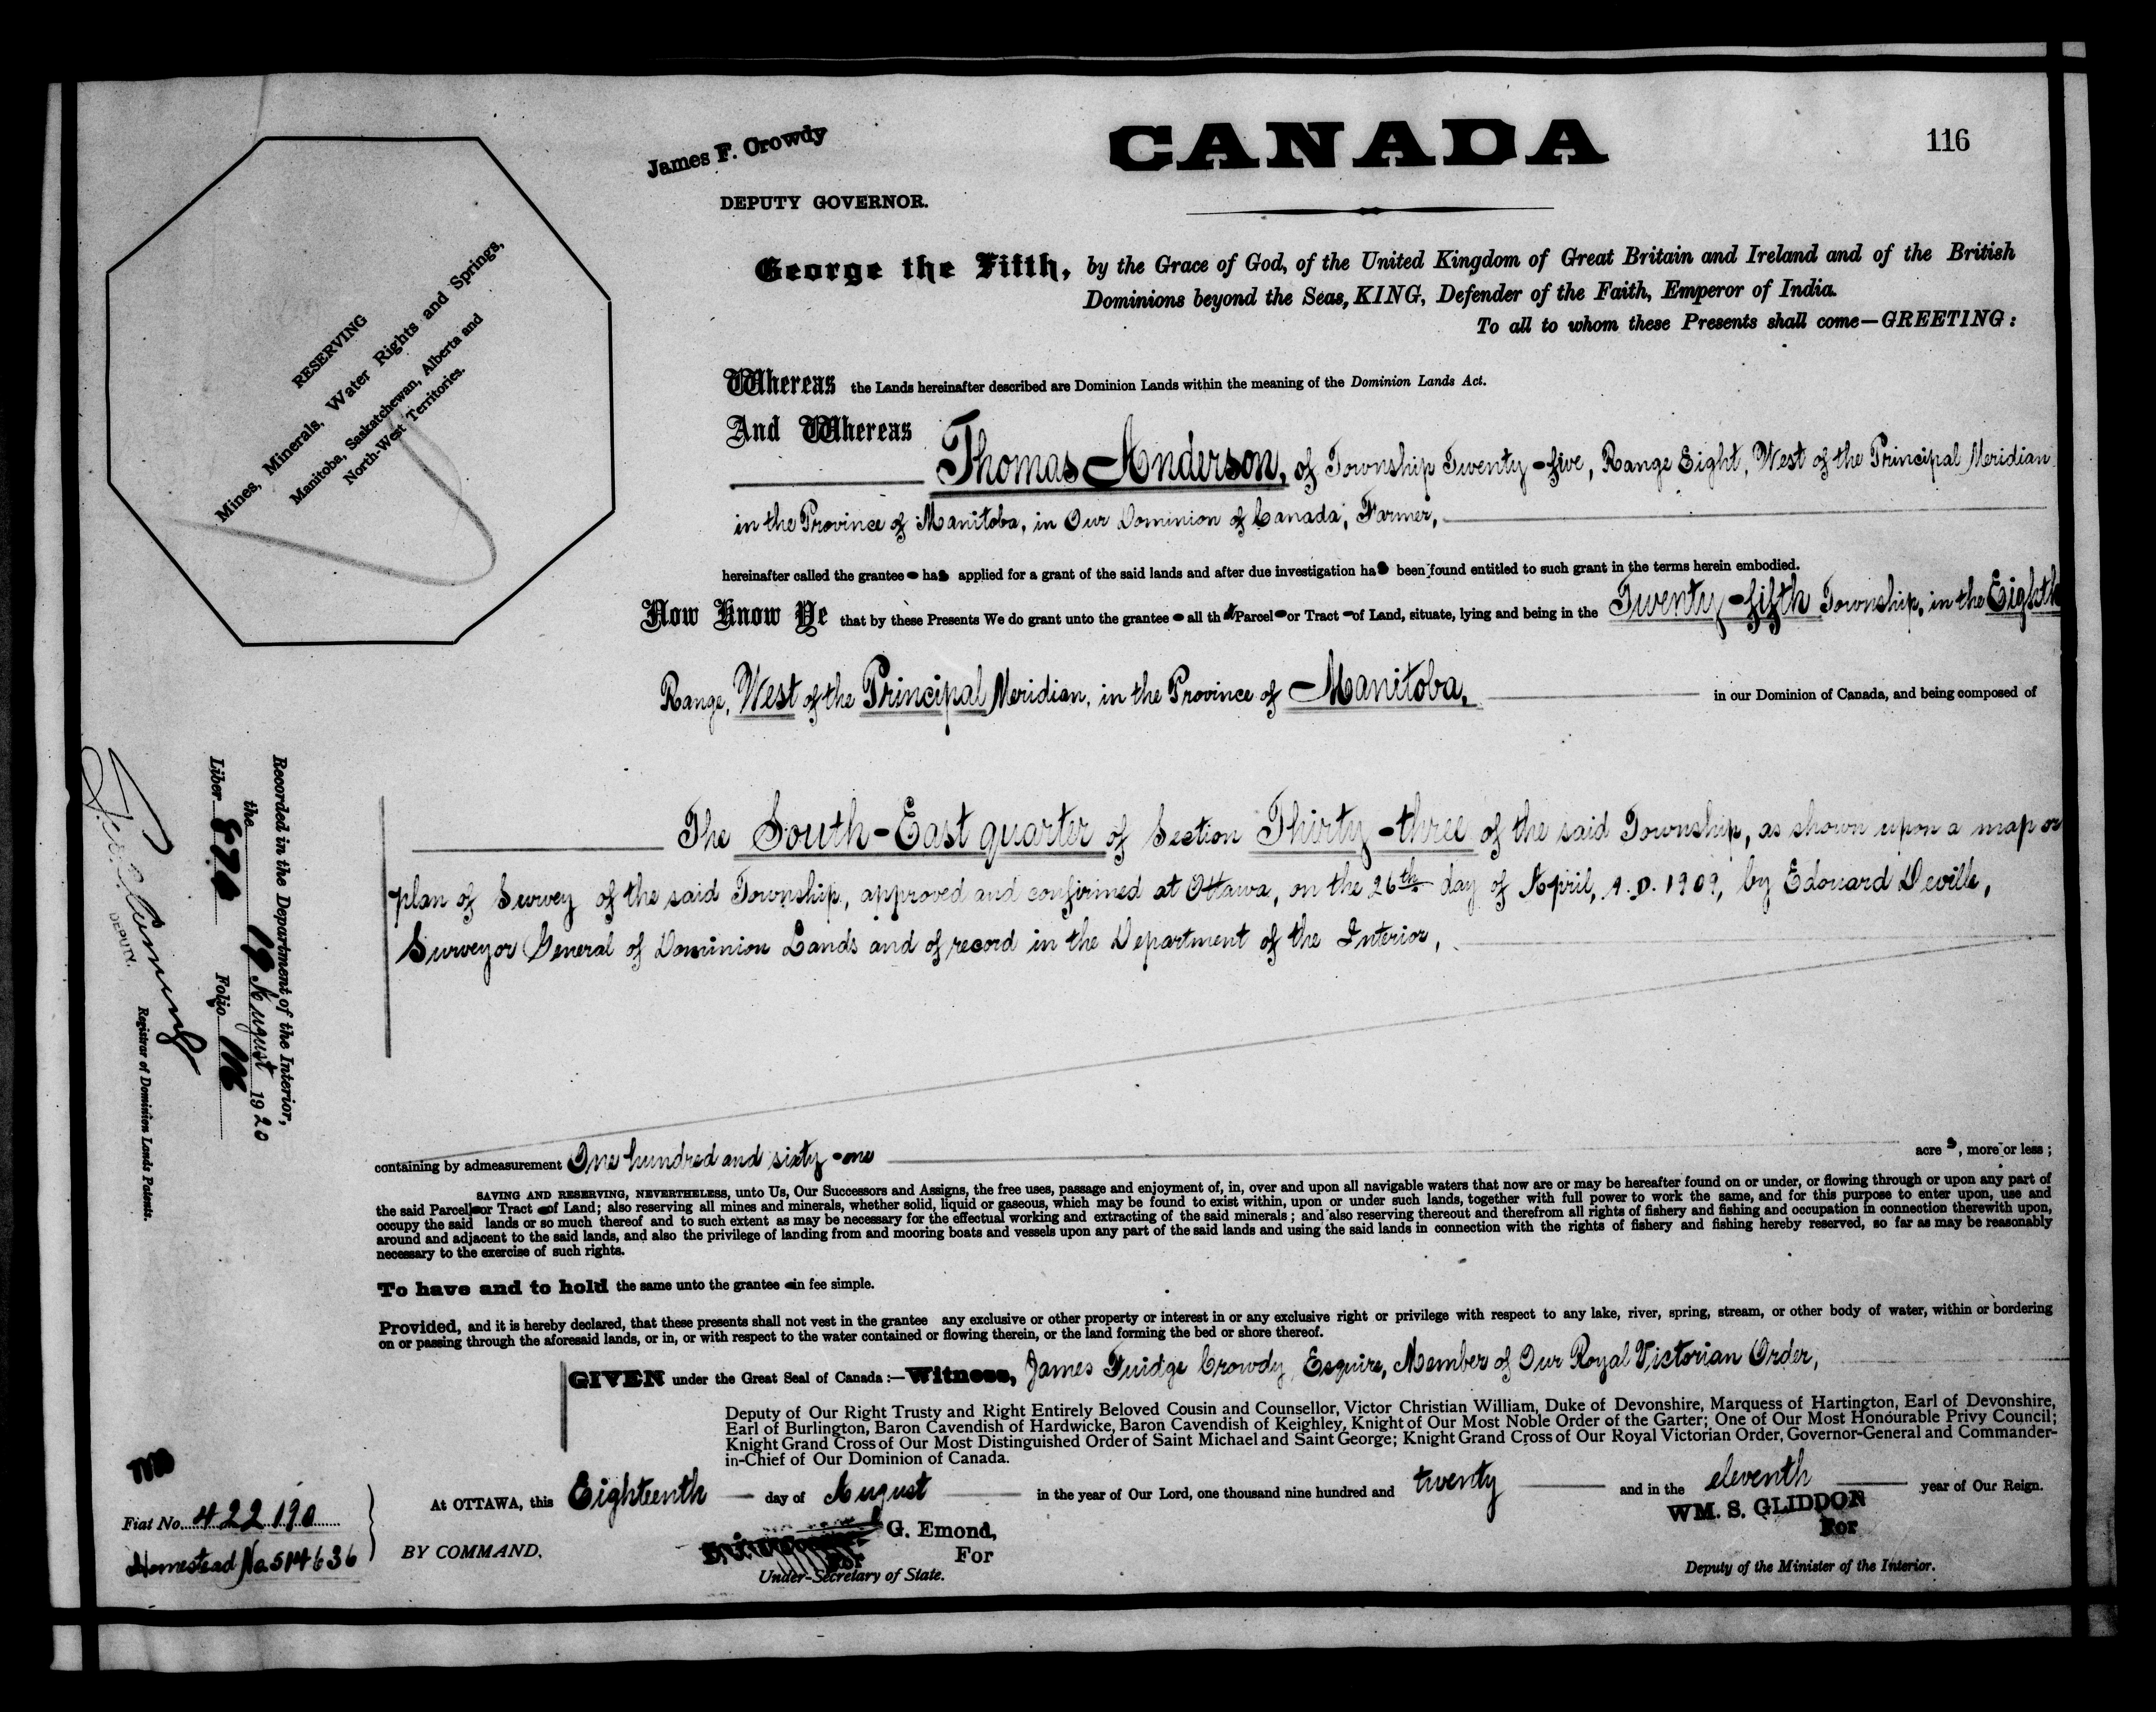 CANADA
116
James F. Crowdy
DEPUTY GOVERNOR.
George the Fifth, by the Grace of God, of the United Kingdom of Great Britain and Ireland and of the British
Dominions beyond the Seas, KING, Defender of the Faith, Emperor of India.
To all to whom these Presents shall come—GREETING:
RESERVING
Mines, Minerals, Water Rights and Springs,
Manitoba, Saskatchewan, Alberta and
North-West Territories.
Whereas the Lands hereinafter described are Dominion Lands within the meaning of the Dominion Lands Act.
And Whereas
Thomas Anderson, of Township Twenty-five, Range Eight, West of the Principal Meridian
in the Province of Manitoba, in Our Dominion of Canada, Farmer,
hereinafter called the grantee has applied for a grant of the said lands and after due investigation has been found entitled to such grant in the terms herein embodied.
Now Know Ye that by these Presents We do grant unto the grantee all that Parcel or Tract of Land, situate, lying and being in the Twenty-fifth Township, in the Eighth
Range, West of the Principal Meridian, in the Province of Manitoba, in our Dominion of Canada, and being composed of
The South-East quarter of Section Thirty-three of the said Township, as shown upon a map or
plan of Survey of the said Township, approved and confirmed at Ottawa, on the 26th day of April, A.D. 1909, by Edouard Deville,
Surveyor General of Dominion Lands and of record in the Department of the Interior,
containing by admeasurement One hundred and sixty-one acres, more or less;
SAVING AND RESERVING, NEVERTHELESS, unto Us, Our Successors and Assigns, the free uses, passage and enjoyment of, in, over and upon all navigable waters that now are or may be hereafter found on or under, or flowing through or upon any part of
the said Parcel or Tract of Land; also reserving all mines and minerals, whether solid, liquid or gaseous, which may be found to exist within, upon or under such lands, together with full power to work the same, and for this purpose to enter upon, use and
occupy the said lands or so much thereof and to such extent as may be necessary for the effectual working and extracting of the said minerals; and also reserving thereout and therefrom all rights of fishery and fishing and occupation in connection therewith upon,
around and adjacent to the said lands, and also the privilege of landing from and mooring boats and vessels upon any part of the said lands and using the said lands in connection with the rights of fishery and fishing hereby reserved, so far as may be reasonably
necessary to the exercise of such rights.
To have and to hold the same unto the grantee in fee simple.
Provided, and it is hereby declared, that these presents shall not vest in the grantee any exclusive or other property or interest in or any exclusive right or privilege with respect to any lake, river, spring, stream, or other body of water, within or bordering
on or passing through the aforesaid lands, or in, or with respect to the water contained or flowing therein, or the land forming the bed or shore thereof.
GIVEN under the Great Seal of Canada:—Witness, James Fuidge Crowdy, Esquire, Member of Our Royal Victorian Order,
Deputy of Our Right Trusty and Right Entirely Beloved Cousin and Counsellor, Victor Christian William, Duke of Devonshire, Marquess of Hartington, Earl of Devonshire,
Earl of Burlington, Baron Cavendish of Hardwicke, Baron Cavendish of Keighley, Knight of Our Most Noble Order of the Garter; One of Our Most Honourable Privy Council;
Knight Grand Cross of Our Most Distinguished Order of Saint Michael and Saint George; Knight Grand Cross of Our Royal Victorian Order, Governor-General and Commander-
in-Chief of Our Dominion of Canada.
At OTTAWA, this Eighteenth day of August in the year of Our Lord, one thousand nine hundred and twenty and in the eleventh year of Our Reign.
BY COMMAND,
G. Emond,
For
Under-Secretary of State.
WM. S. GLIDDON
For
Deputy of the Minister of the Interior.
Fiat No. 422190
Homestead No. 514636
Recorded in the Department of the Interior,
the 19 August 1920
Liber 870 Folio 116
DEPUTY.
Registrar of Dominion Lands Patents.